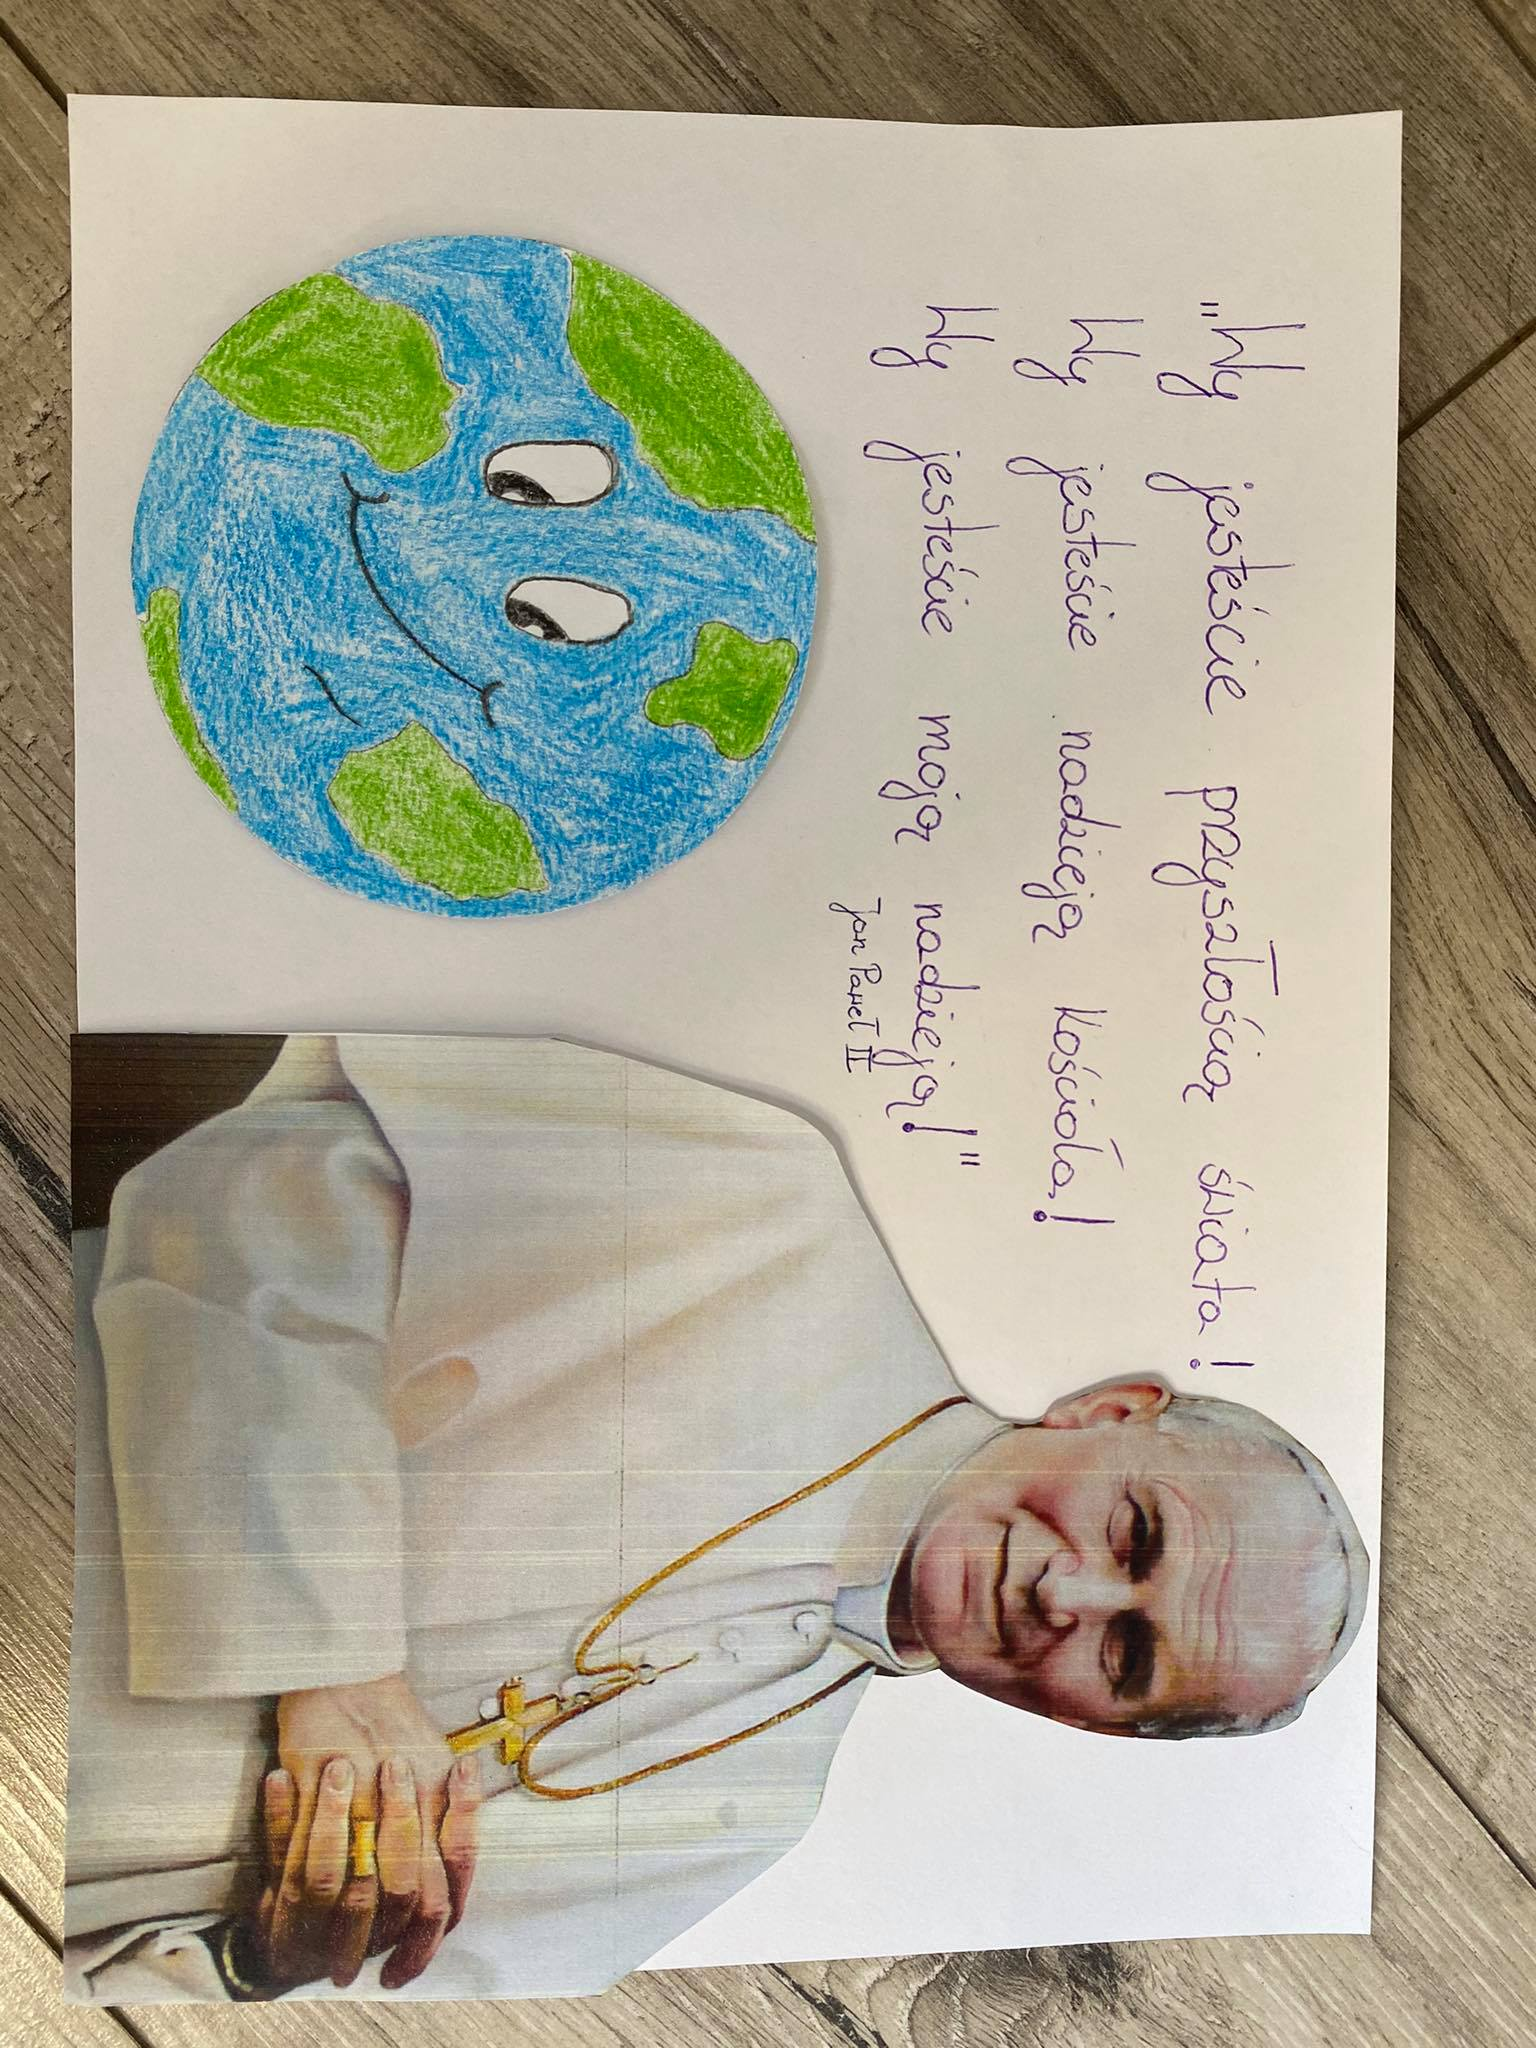 "Wy jesteście przyszłością świata!
Wy jesteście nadzieją Kościoła!
Wy jesteście moją nadzieją!"
Jan Paweł II